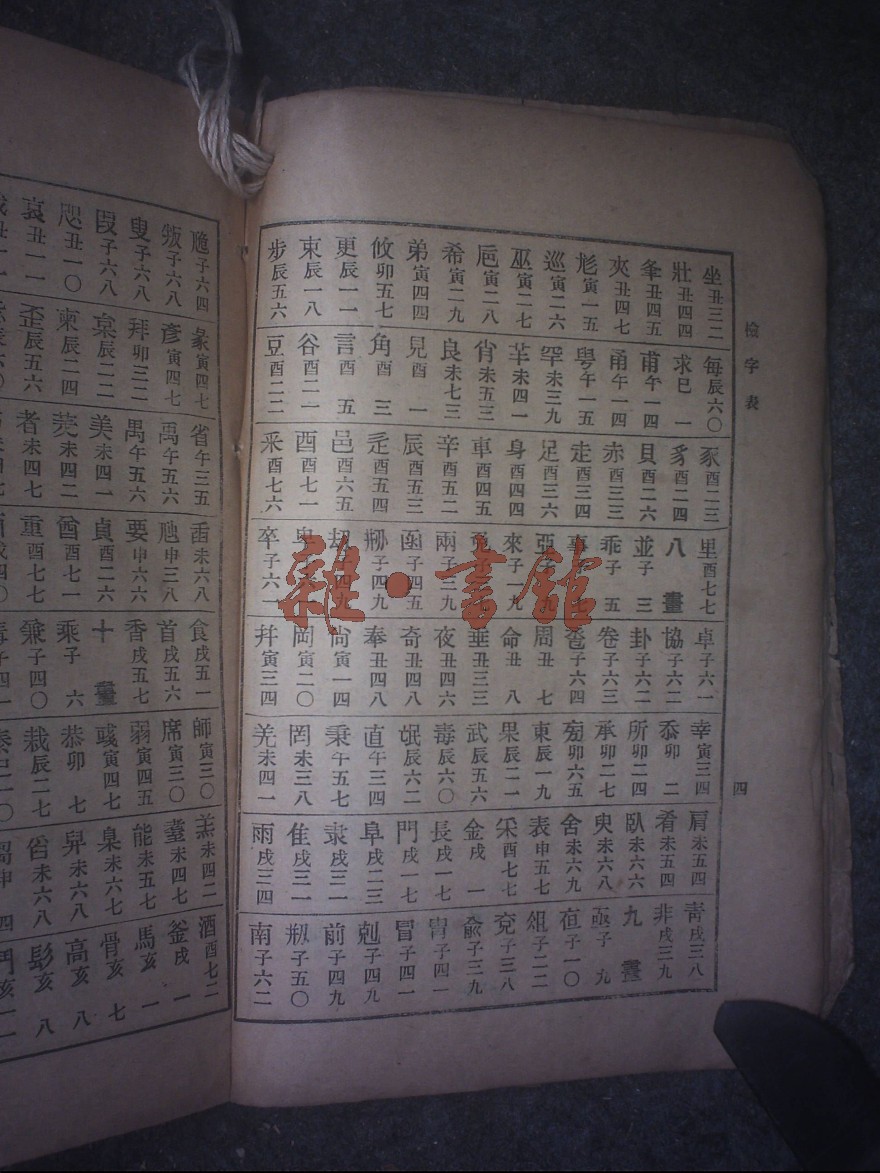 檢字表
四
坐丑三二
壯丑四四
夆丑四五
夾丑四七
尨寅一五
巡寅二六
巫寅二七
巵寅二八
希寅二九
弟寅四四
攸卯五七
更辰一一
束辰一八
步辰五六
每辰六〇
求巳一
甫午一四
甬午一四
甹午一五
罕未三九
羋未四一
肖未五三
良未七三
見酉一
角酉三
言酉五
谷酉二一
豆酉二二
豕酉二三
豸酉二四
貝酉二六
赤酉三三
走酉三四
足酉三六
身酉四四
車酉四五
辛酉五二
辰酉五三
辵酉五四
邑酉六五
酉酉七一
釆酉七六
里酉七七
八畫
並子三
乖子五
事子七
亞子九
來子一九
兩子三九
函子四五
刱子四九
刧子四九
卑子六
卒子六一
卓子六一
協子六二
卦子六二
卷子六三
卺子六四
周丑七
命丑八
垂丑三三
夜丑四六
奇丑四八
奉丑四八
尙寅一四
岡寅二〇
幷寅三四
幸寅三四
忝卯二
所卯二四
承卯二七
卯六五
東辰一九
果辰二一
武辰五六
毒辰六〇
氓辰六二
直午三四
秉午五七
罔未三八
羌未四一
肩未五四
肴未五四
臥未六六
臾未六八
舍未六九
表申五七
采酉七七
金戌一
長戌一七
門戌一七
阜戌二三
隶戌三一
隹戌三一
雨戌三四
靑戌三八
非戌三九
九畫
亟子九
子一〇
俎子二二
兗子三八
兪子三九
冑子四一
冒子四一
剋子四九
前子四九
剏子五〇
南子六二
卼子六四
叛子六八
叟子六八
叚子六八
咫丑一〇
哀丑一一
彖寅四七
彥寅四七
拜卯三二
枲辰二二
柬辰二四
歪辰五六
省午三五
禹午五六
禺午五六
美未四一
羑未四二
者未四七
臿未六八
虺申三八
要申六六
貞酉二六
酋酉七一
重酉七七
食戌五一
首戌五六
香戌五七
十畫
乘子六
兼子四〇
師寅三〇
席寅三〇
弱寅四五
彧寅四七
恭卯七
栽辰二七
羔未四二
耋未四七
能未五七
臬未六七
舁未六八
舀未六八
酒酉七二
釜戌一
馬亥一
骨亥七
高亥八
髟亥八
雜·書館